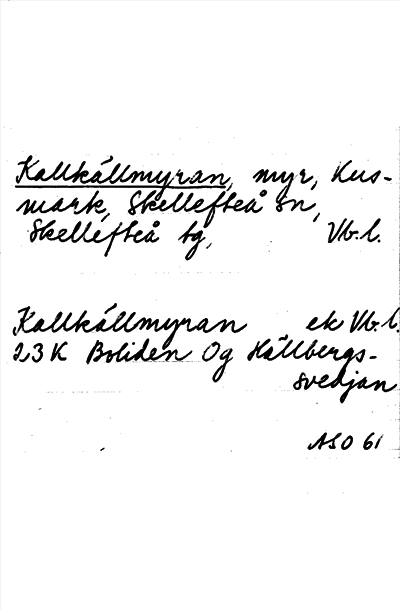 Kallkällmyran, myr, Kus-
mark, Skellefteå sn,
Skellefteå tg, Vb.l.
Kallkällmyran ek Vb.l.
23K Boliden Og Hällbergs-
svedjan
ASO 61